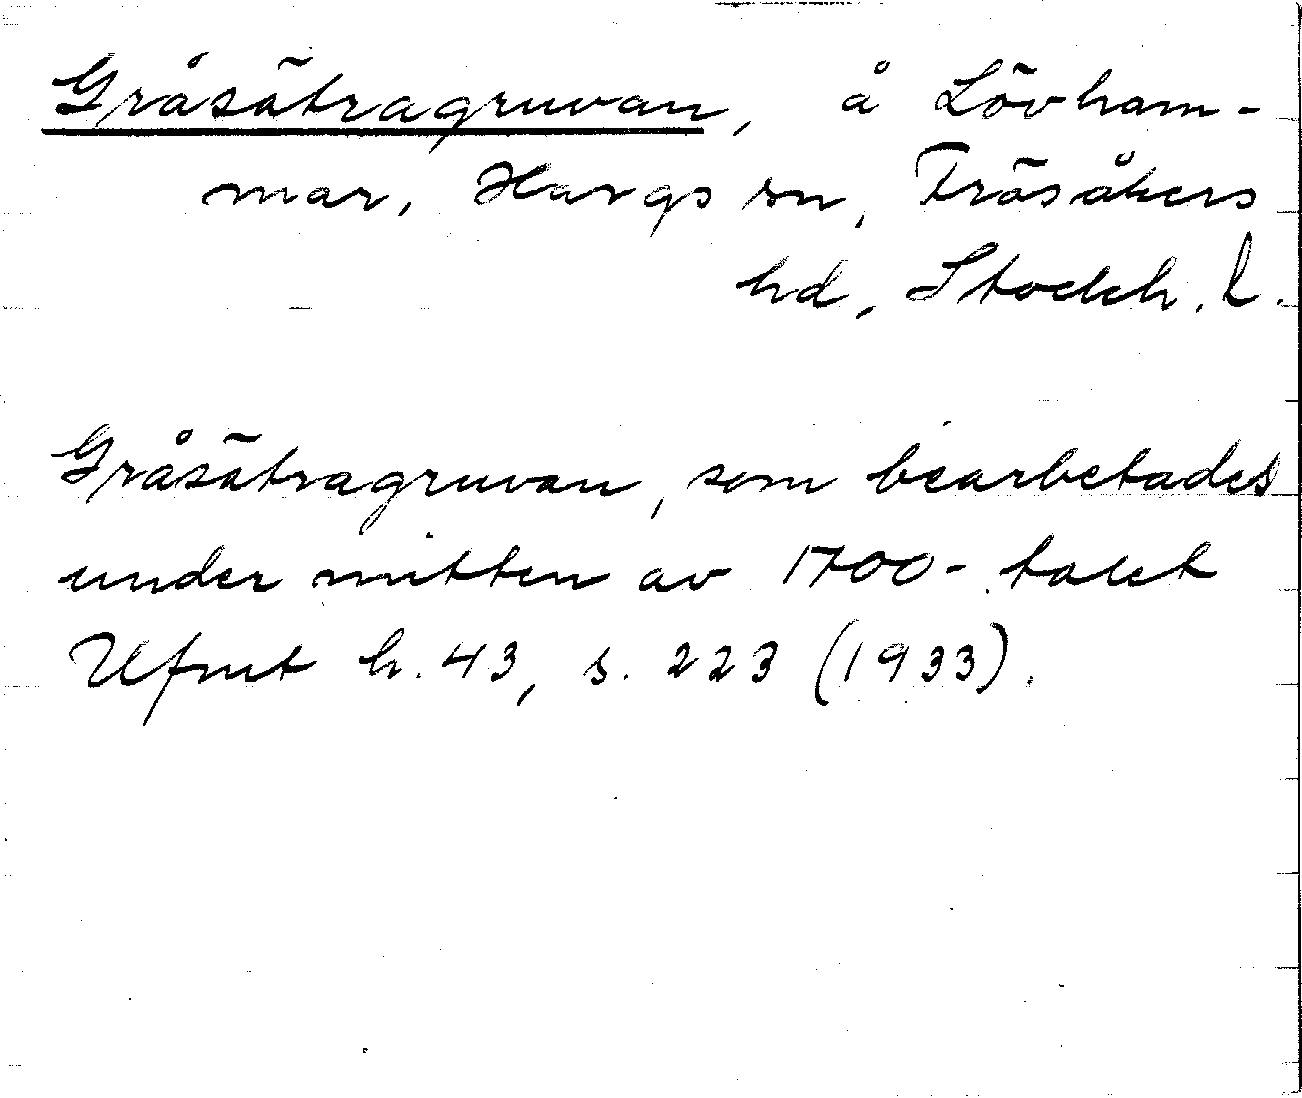 Gråsätragruvan, å Lövham-
mar, Hargs sn, Frösåkers
hd, Stockh. l.
Gråsätragruvan, som bearbetades
under mitten av 1700-talet
Ufmt h. 43, s. 223 (1933).